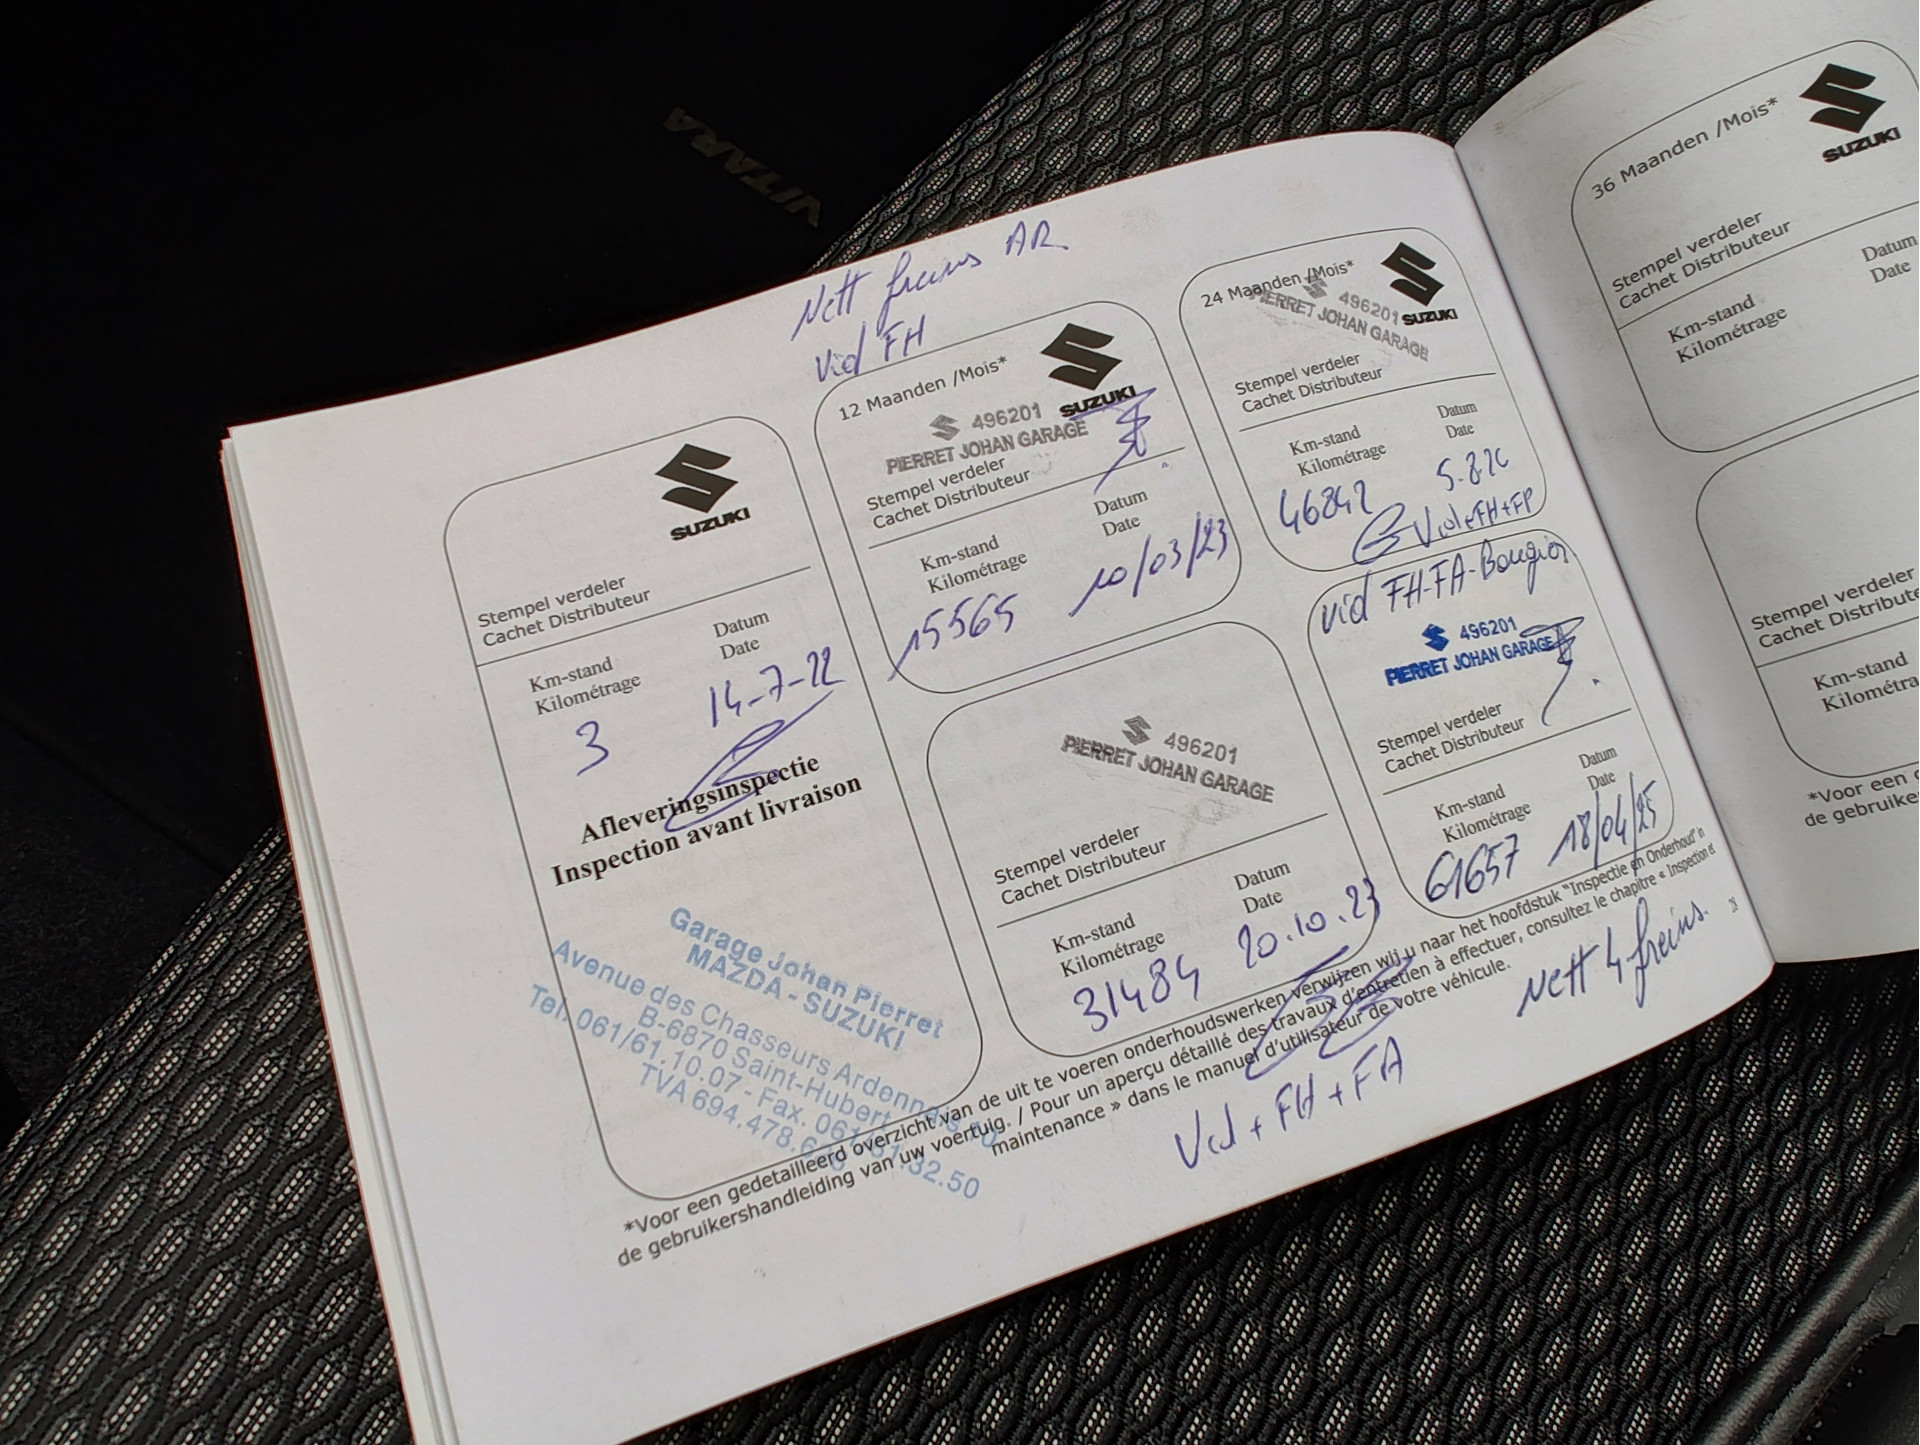 VITARA
Nett freins AR
Vid FH
SUZUKI
Stempel verdeler
Cachet Distributeur
Km-stand
Kilométrage
Datum
Date
3
14-7-22
Afleveringsinspectie
Inspection avant livraison
Garage Johan Pierret
MAZDA - SUZUKI
Avenue des Chasseurs Ardennais
B-6870 Saint-Hubert
Tel. 061/61.10.07 - Fax. 061/61.32.50
TVA 694.478.
12 Maanden /Mois*
SUZUKI
496201
PIERRET JOHAN GARAGE
Stempel verdeler
Cachet Distributeur
Km-stand
Kilométrage
Datum
Date
15565
10/03/23
496201
PIERRET JOHAN GARAGE
Stempel verdeler
Cachet Distributeur
Km-stand
Kilométrage
Datum
Date
31484
20.10.23
Vid + FH + FA
24 Maanden /Mois*
SUZUKI
496201
PIERRET JOHAN GARAGE
Stempel verdeler
Cachet Distributeur
Km-stand
Kilométrage
Datum
Date
46242
Vid+FH+FP
vid FH-FA-Bougies
496201
PIERRET JOHAN GARAGE
Stempel verdeler
Cachet Distributeur
Km-stand
Kilométrage
Datum
Date
61657
18/04/25
Nett 4 freins.
*Voor een gedetailleerd overzicht van de uit te voeren onderhoudswerken verwijzen wij u naar het hoofdstuk "Inspectie en Onderhoud" in
de gebruikershandleiding van uw voertuig. / Pour un aperçu détaillé des travaux d'entretien à effectuer, consultez le chapitre « Inspection et
maintenance » dans le manuel d'utilisateur de votre véhicule.
36 Maanden /Mois*
SUZUKI
Stempel verdeler
Cachet Distributeur
Km-stand
Kilométrage
Datum
Date
Stempel verdeler
Cachet Distribute
Km-stand
Kilométra
*Voor een
de gebruike